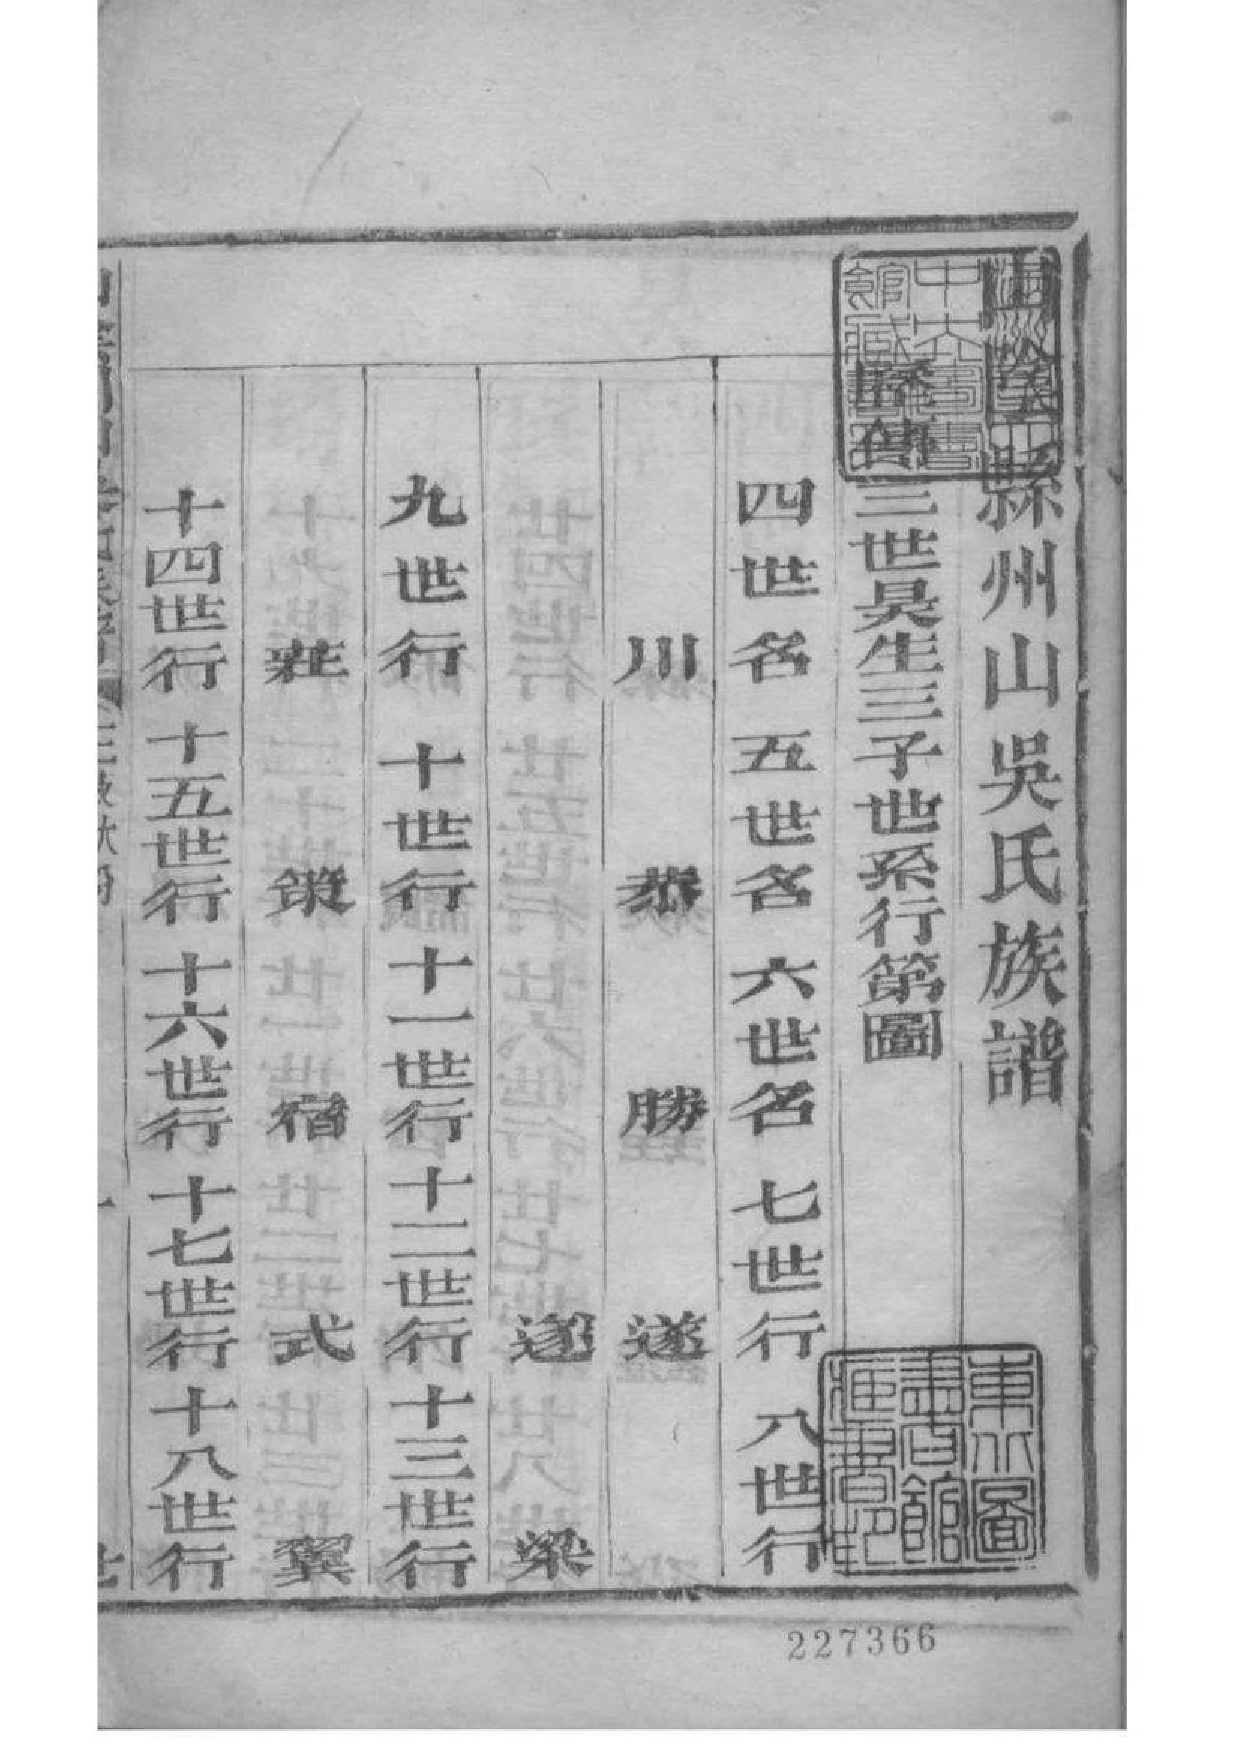 山陰縣州山吳氏族譜
三世昊生三子世系行第圖
四世名 五世名 六世名 七世行 八世行
川 恭 勝 遂
邃 梁
九世行 十世行 十一世行 十二世行 十三世行
莊 策 宿 式 翼
十四世行 十五世行 十六世行 十七世行 十八世行
227366